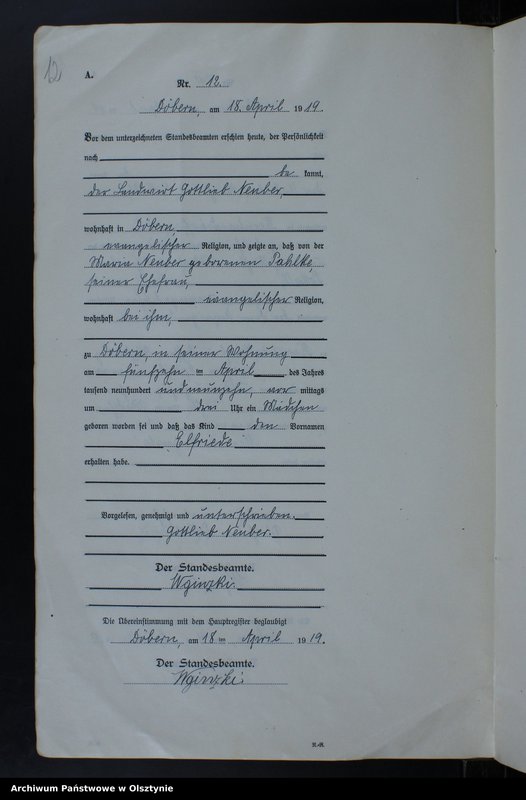 12
A.
Nr. 12.
Döbern, am 18. April 1919.
Vor dem unterzeichneten Standesbeamten erschien heute, der Persönlichkeit
nach
be kannt,
der Landwirt Gottlieb Neuber,
wohnhaft in Döbern,
evangelischer Religion, und zeigte an, daß von der
Maria Neuber geborenen Pahlke,
seiner Ehefrau,
evangelischer Religion,
wohnhaft bei ihm,
zu Döbern, in seiner Wohnung
am fünfzehn ten April des Jahres
tausend neunhundert und neunzehn, vor mittags
um drei Uhr ein Mädchen
geboren worden sei und daß das Kind den Vornamen
Elfriede
erhalten habe.
Vorgelesen, genehmigt und unterschrieben.
Gottlieb Neuber.
Der Standesbeamte.
Die Übereinstimmung mit dem Hauptregister beglaubigt
Döbern, am 18 ten April 1919.
Der Standesbeamte.
Archiwum Państwowe w Olsztynie